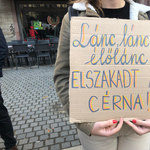 Lánc, lánc,
élőlánc
ELSZAKADT A
CÉRNA!